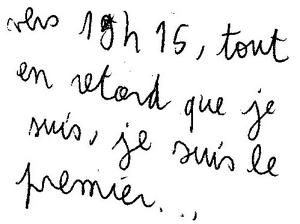 vers 19h 15, tout
en retard que je
suis, je suis le
premier...